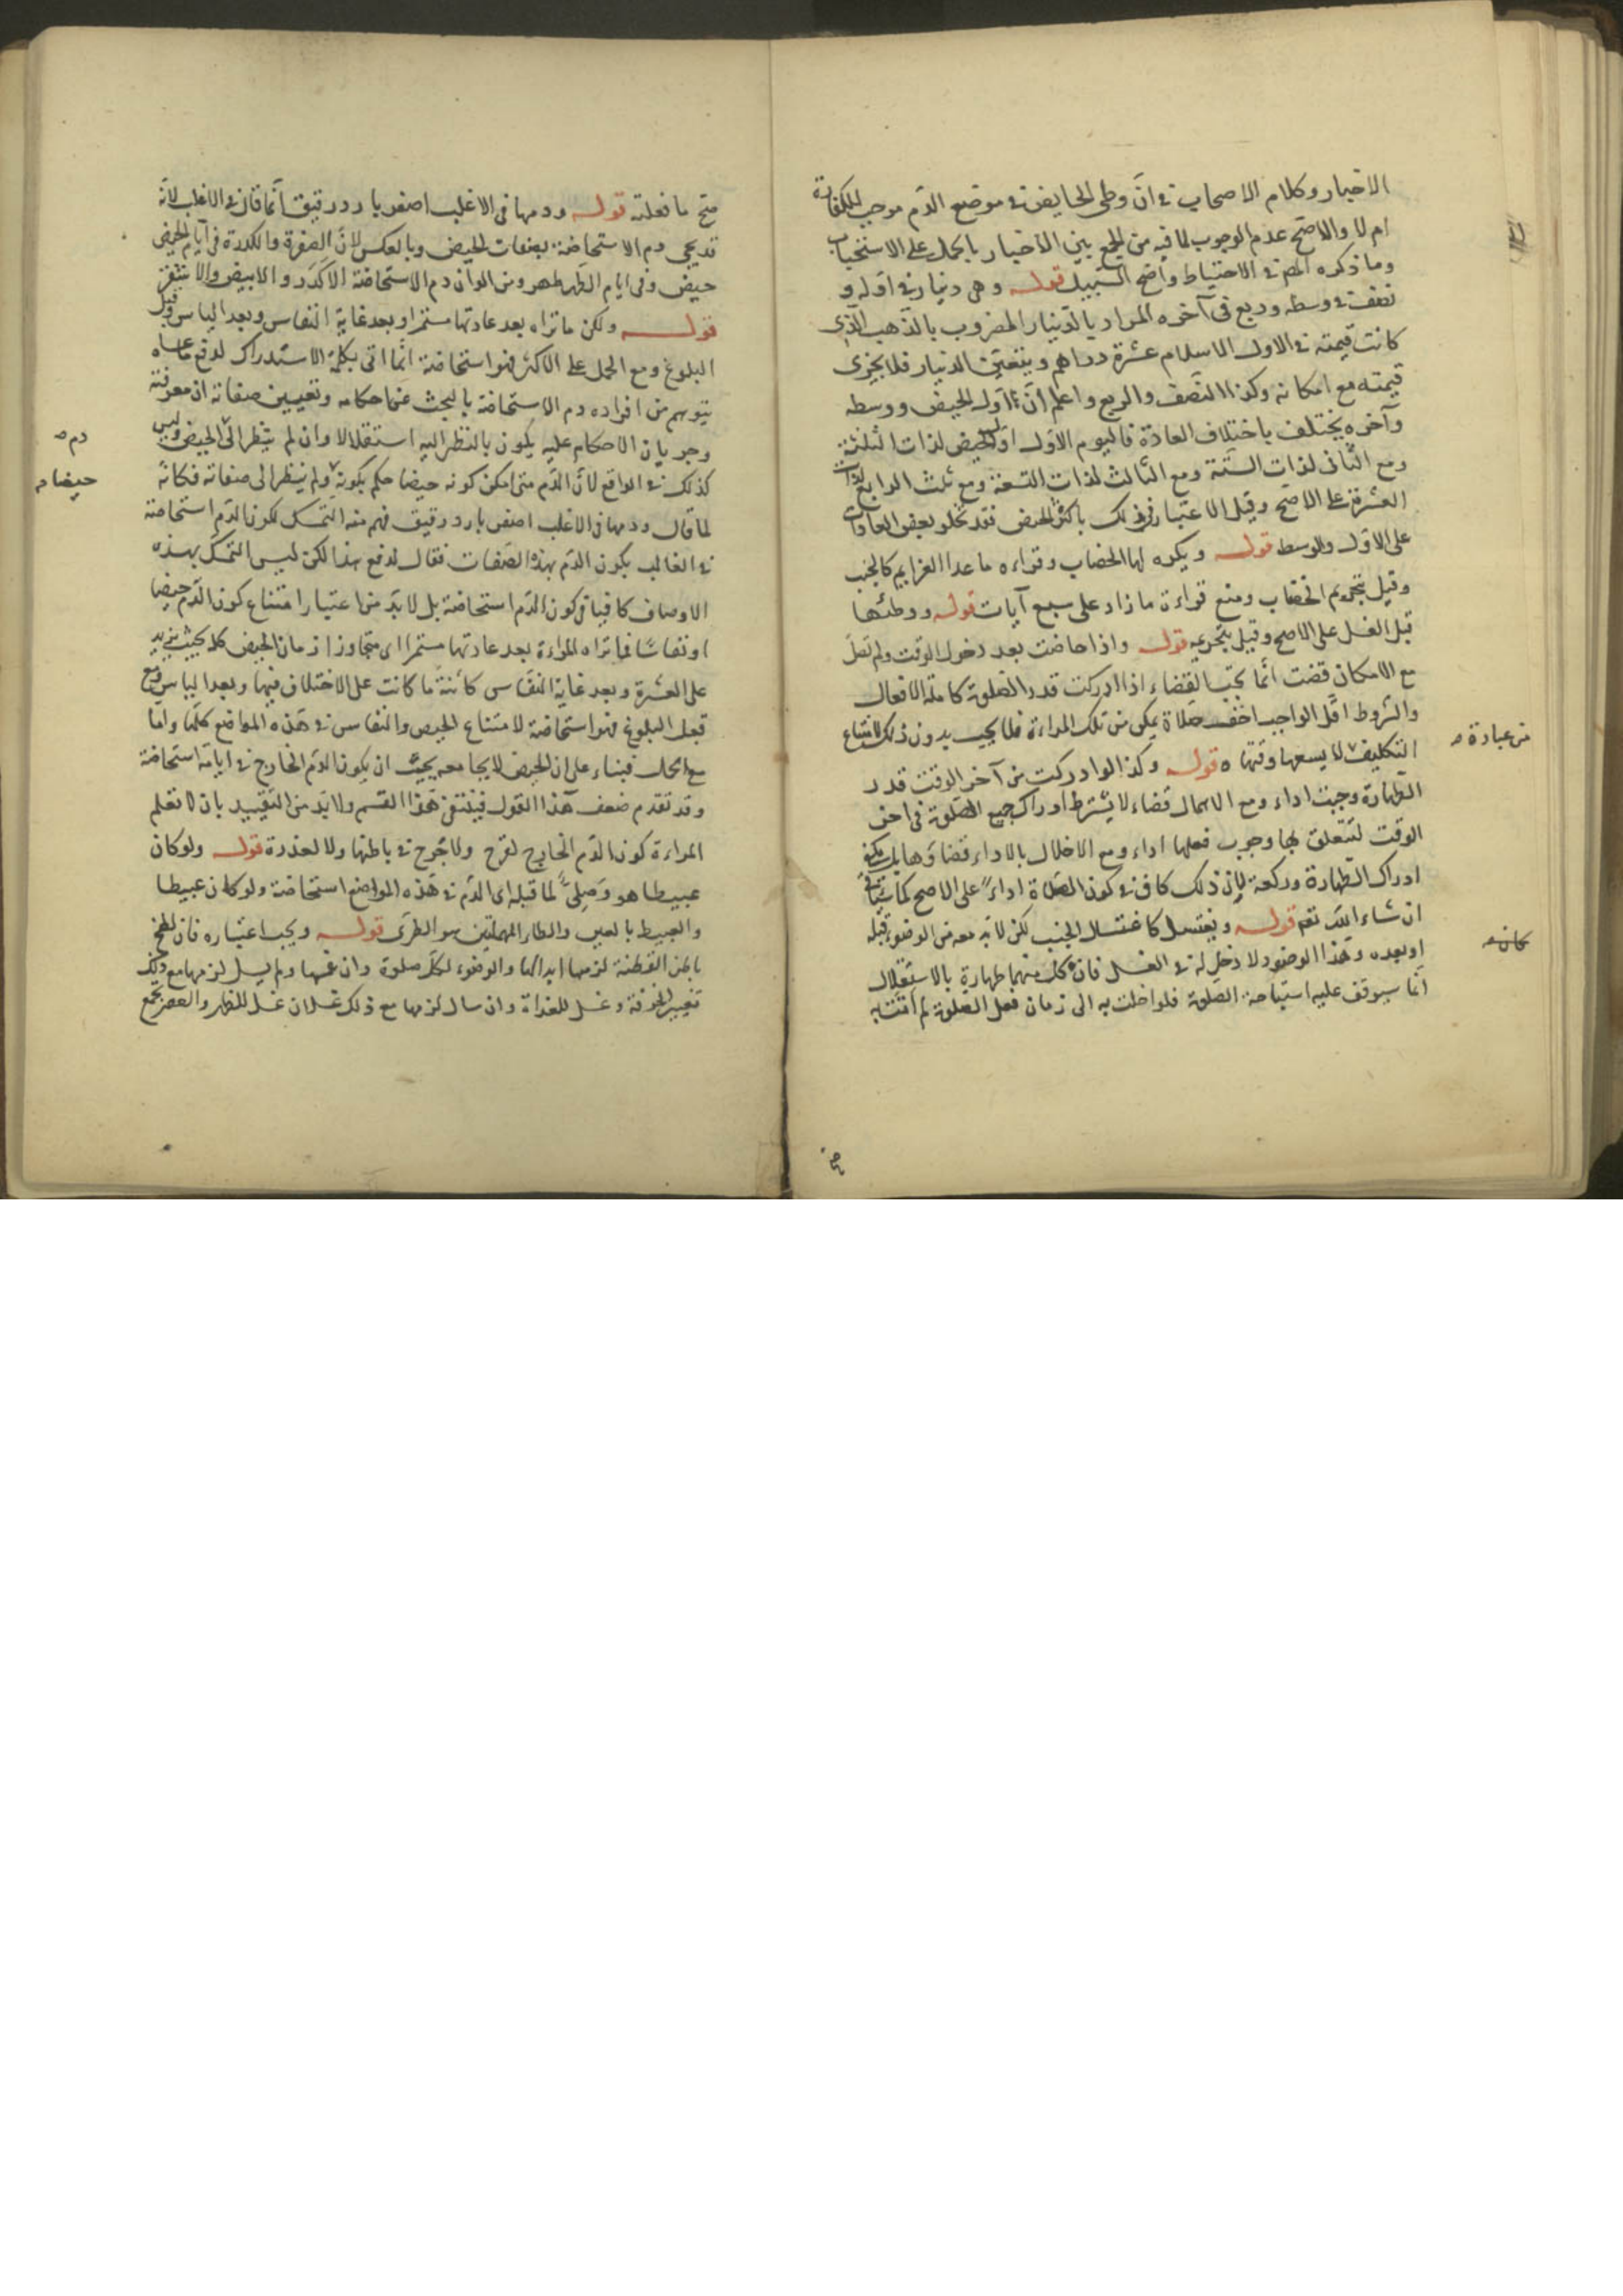 الاخبار وكلام الاصحاب في انّ وطى الحايض في موضع الدّم موجب للكفارة
ام لا والاصحّ عدم الوجوب لما فيه من الجمع بين الاخبار بالحمل على الاستحباب
وما ذكره المص في الاحتياط واضح السّبيل قوله وهى دينار في اوله و
نصف في وسطه وربع فى آخره المراد بالدّينار المضروب بالذّهب الذى
كانت قيمته في الاول الاسلام عشرة دراهم ويتعيّن الدنيار فلا يجزى
قيمته مع امكانه وكذا النّصف والربع واعلم انّ اوّل الحيض ووسطه
وآخره يختلف باختلاف العادة فاليوم الاوّل اوّل الحيض لذات الثلثة
ومع الثّانى لذات الستّة ومع الثّالث لذات التسعة ومع ثلث الرابع لذات
العشرة على الاصحّ وقيل الاعتبار فى ذلك باكثر الحيض فقد تخلو بعض العادات
على الاوّل والوسط قوله ويكره لها الخضاب وقراءه ما عدا العزايم كالجنب
وقيل بتحريم الخضاب ومنع قراءة ما زاد على سبع آيات قوله ووطئها
قبل الغسل على الاصح وقيل بتحريمه قوله واذا حاضت بعد دخول الوقت ولم تصلّ
مع الامكان قضت انّما يجب القضاء اذا ادركت قدر الصلوة كاملة الافعال
والشروط اقلّ الواجب اخف صلاة يمكن من تلك المراءة فلا يجب بدون ذلك لامتناع
التكليف لا يسعها وقتها ه قوله وكذا لو ادركت من آخر الوقت قدر
الطّهارة وجبت اداء ومع الاهمال قضاء لا يشترط ادراك جميع الصّلوة فى اخر
الوقت لتتعلق بها وجوب فعلها اداء ومع الاخلال بالاداء قضاؤها بل يكفى
ادراك الطّهارة وركعة لان ذلك كاف في كون الصلاة اداءً على الاصح كما سيأتى
ان شاء اللّه تعم قوله ويغتسل كاغتسال الجنب لكن لا بد معه من الوضوء قبله
او بعده وهذا الوضوء لا دخل له في الغسل فان كلّ منهما طهارة بالاستقلال
انّما يتوقف عليه استباحة الصّلوة فلو اخلت به الى زمان فعل الصلوة لم
من عبارة م
كان م
صحّ ما فعلته قوله ودمها فى الاغلب اصفر بارد رقيق انّما قال في الاغلب لانّه
قد يجى دم الاستحاضة بصفات الحيض وبالعكس لانّ الصفرة والكدرة فى ايام الحيض
حيض وفى ايام الطّهر طهر ومن الوان دم الاستحاضة الاكدر والابيض
قوله ولكن ما تراه بعد عادتها مستمرا وبعد غاية النفاس وبعد الياس وقبل
البلوغ ومع الحمل على الاكثر فهو استحاضة انّما اتى بكلمة الاستدراك لدفع ما عساه
يتوهم من افراده دم الاستحاضة بالبحث عن احكامه وتعيين صفاته ان معرفته
وجريان الاحكام عليه يكون بالنظر اليه استقلالا وان لم ينظر الى الحيض وليس
كذلك في الواقع لانّ الدّم متى امكن كونه حيضا حكم بكونه ولم ينظر الى صفاته فكانّه
لما قال ودمها فى الاغلب اصفر بارد رقيق فهم منه التمسك لكون الدّم استحاضة
في الغالب بكون الدّم بهذه الصّفات فقال لدفع هذا لكن ليس التمسك بهذه
الاوصاف كافيا فى كون الدّم استحاضة بل لا بدّ من اعتبار امتناع كون الدّم حيضا
او نفاسًا فما تراه المراءة بعد عادتها مستمرا اى متجاوزا زمان الحيض كلا بحيث يزيد
على العشرة وبعد غاية النفاس كائنةً ما كانت على الاختلاف فيها وبعد الياس ومع
قبل البلوغ فهو استحاضة لامتناع الحيض والنفاس في هذه المواضع كلّها وامّا
مع الحمل فبناء على ان الحيض لا يجامعه بحيث ان يكون الدّم الخارج في ايامه استحاضة
وقد تقدم ضعف هذا القول فينتفى هذا القسم ولا بد من التقييد بان لا تعلم
المراءة كون الدّم الخارج لقرح ولا جُرح في باطنها ولا لعذرة قوله ولو كان
عبيطا هو وَصِلىٌّ لما قبله اى الدّم في هذه المواضع استحاضة ولو كان عبيطا
والعبيط بالعين والطاء المهملتين هو الطرى قوله ويجب اعتباره فان لطخ
باطن القطنة لزمها ابدالها والوضوء لكلّ صلوة وان غمسها ولم يسل لزمها مع ذلك
تغيير الخرقة وغسل للغداة وان سال لزمها مع ذلك غسلان غسل للظهر والعصر تجمع
دم م
حيضا م